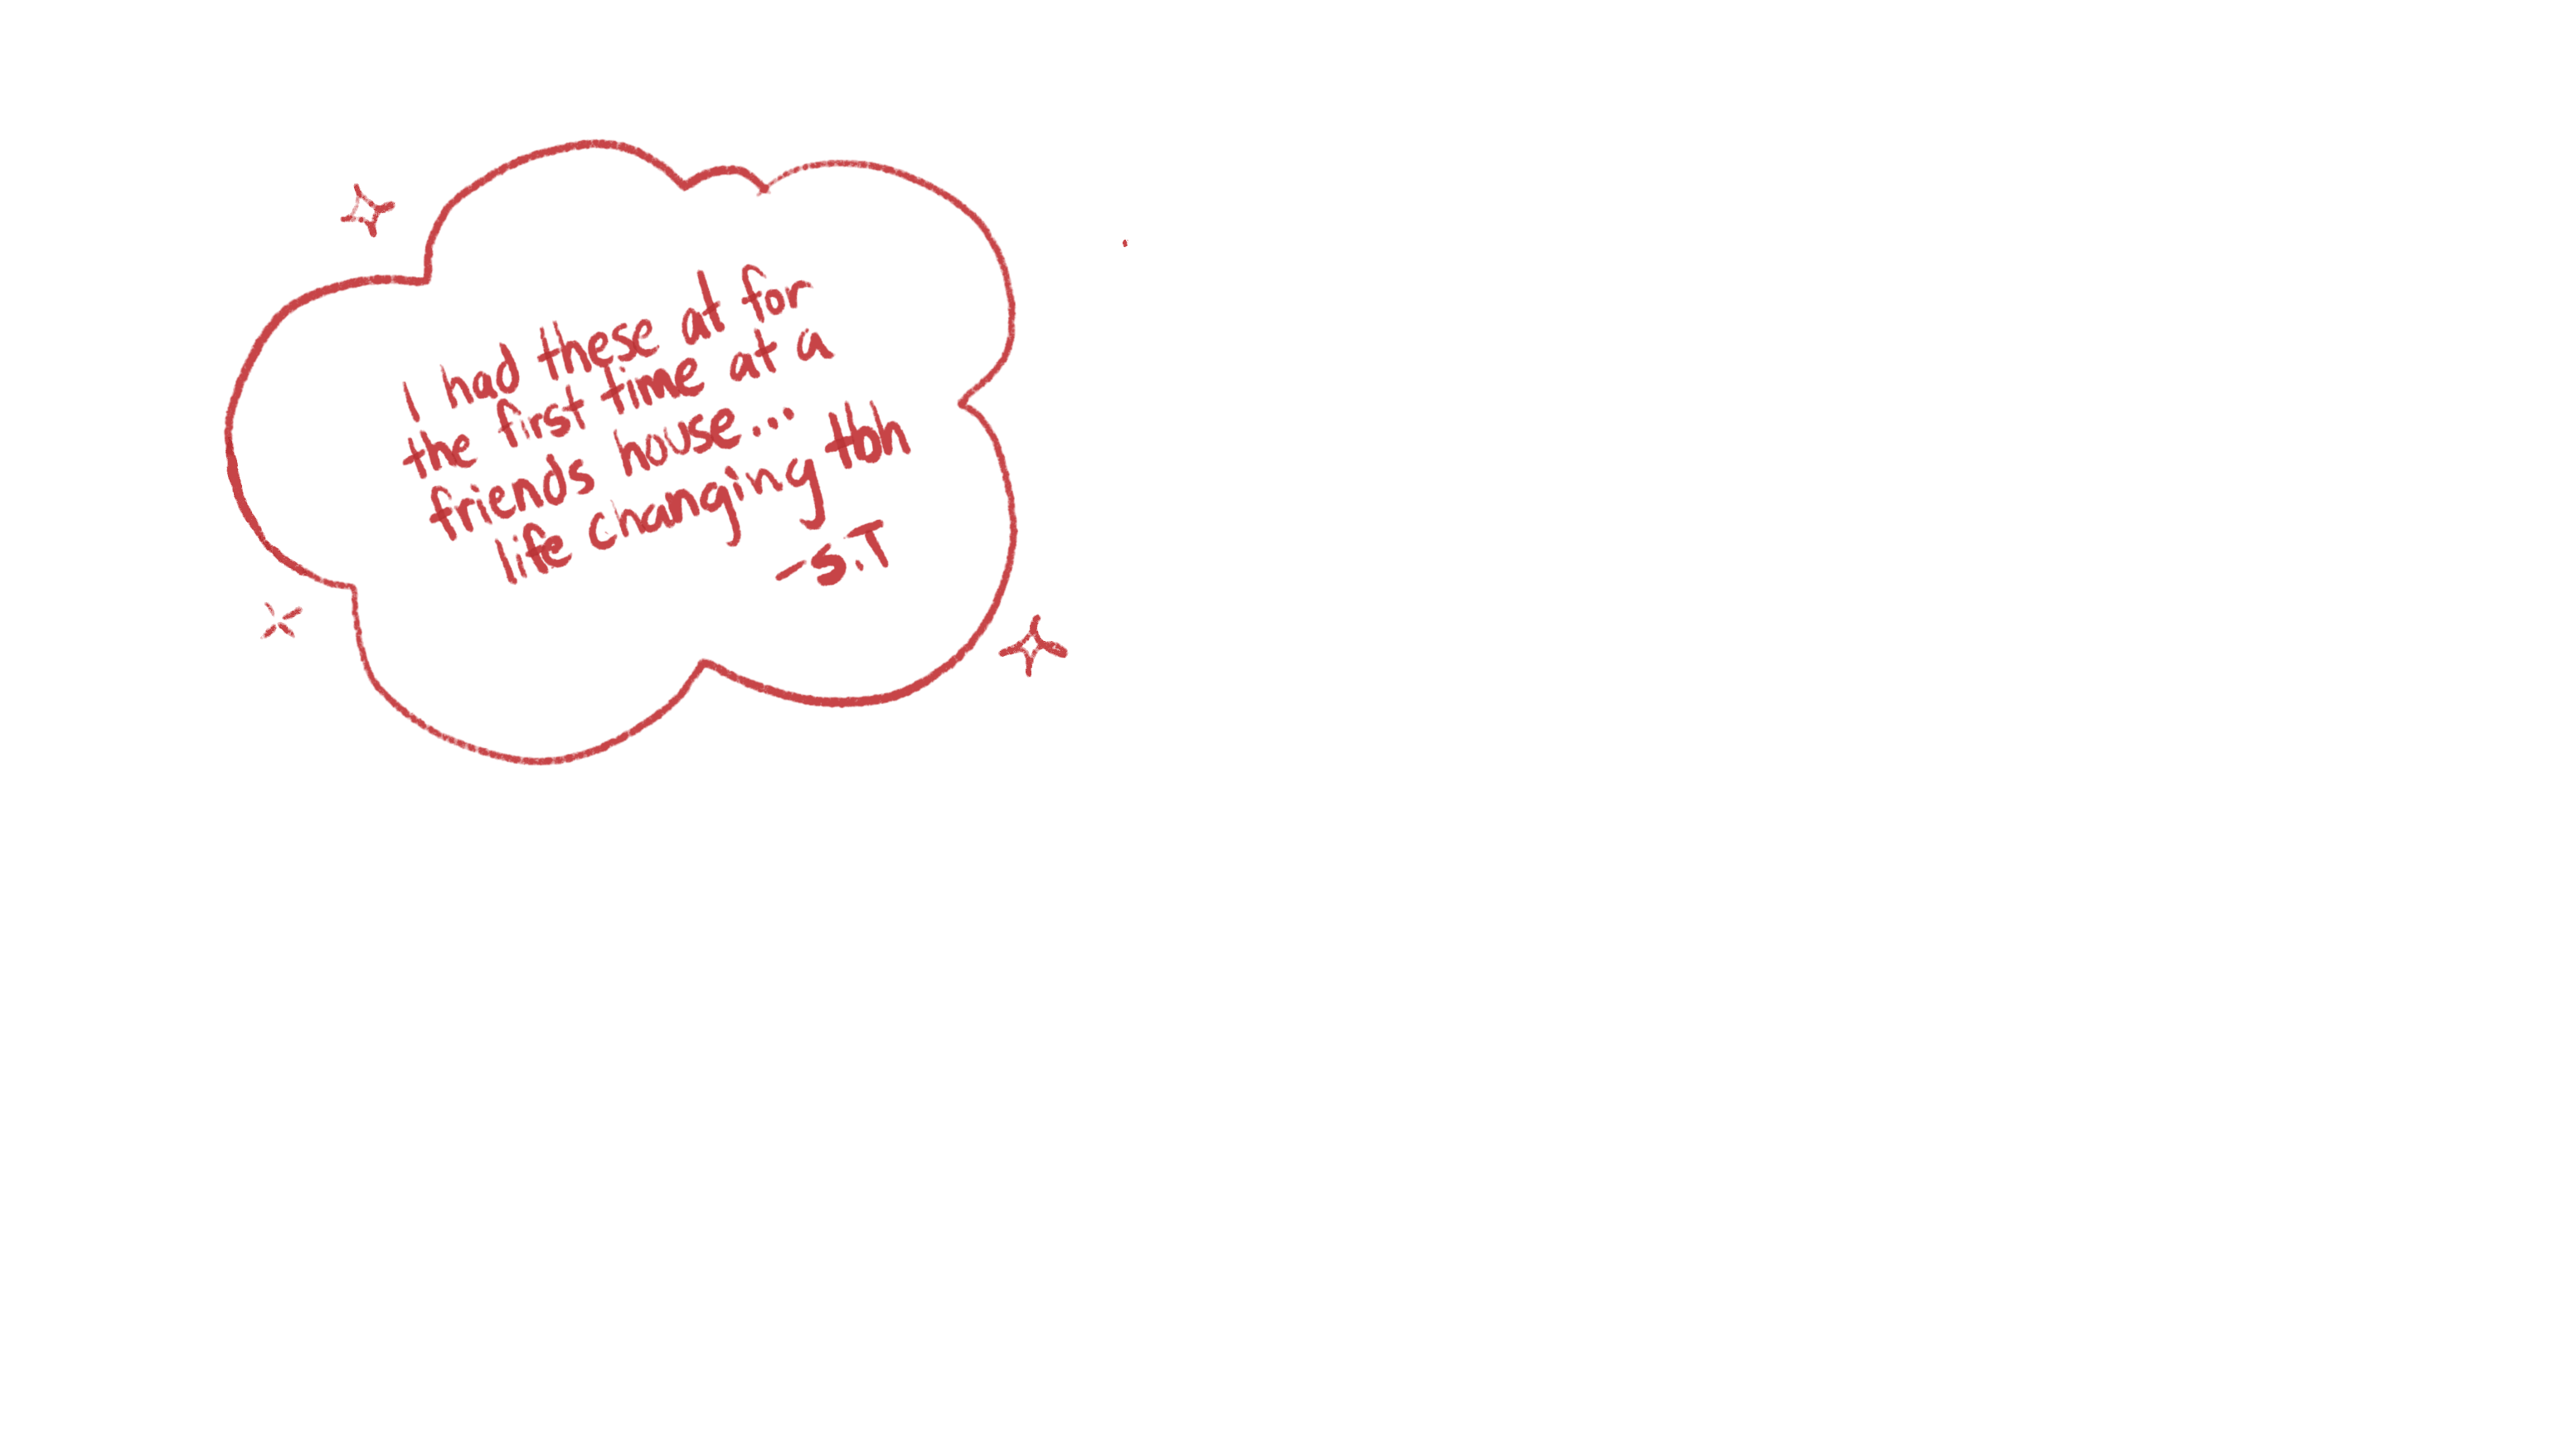 I had these at for
the first time at a
friends house...
life changing tbh
-S.T